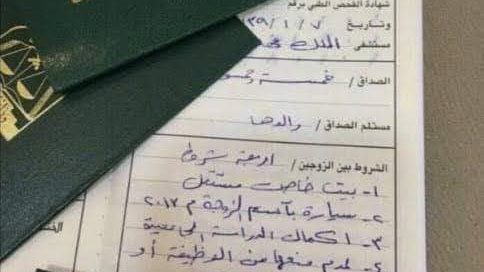 شهادة الفحص الطبي برقم
وتاريخ ٢٩/١/٧
مستشفى / الملك
الصداق / خمسة
مستلم الصداق / والدها
الشروط بين الزوجين / اربعة شروط
١- بيت خاص مستقل
٢- سيارة باسم الزوجة م ٢٠١٣
٣- اكمال الدراسة الجامعية
٤- عدم منعها من الوظيفة أو